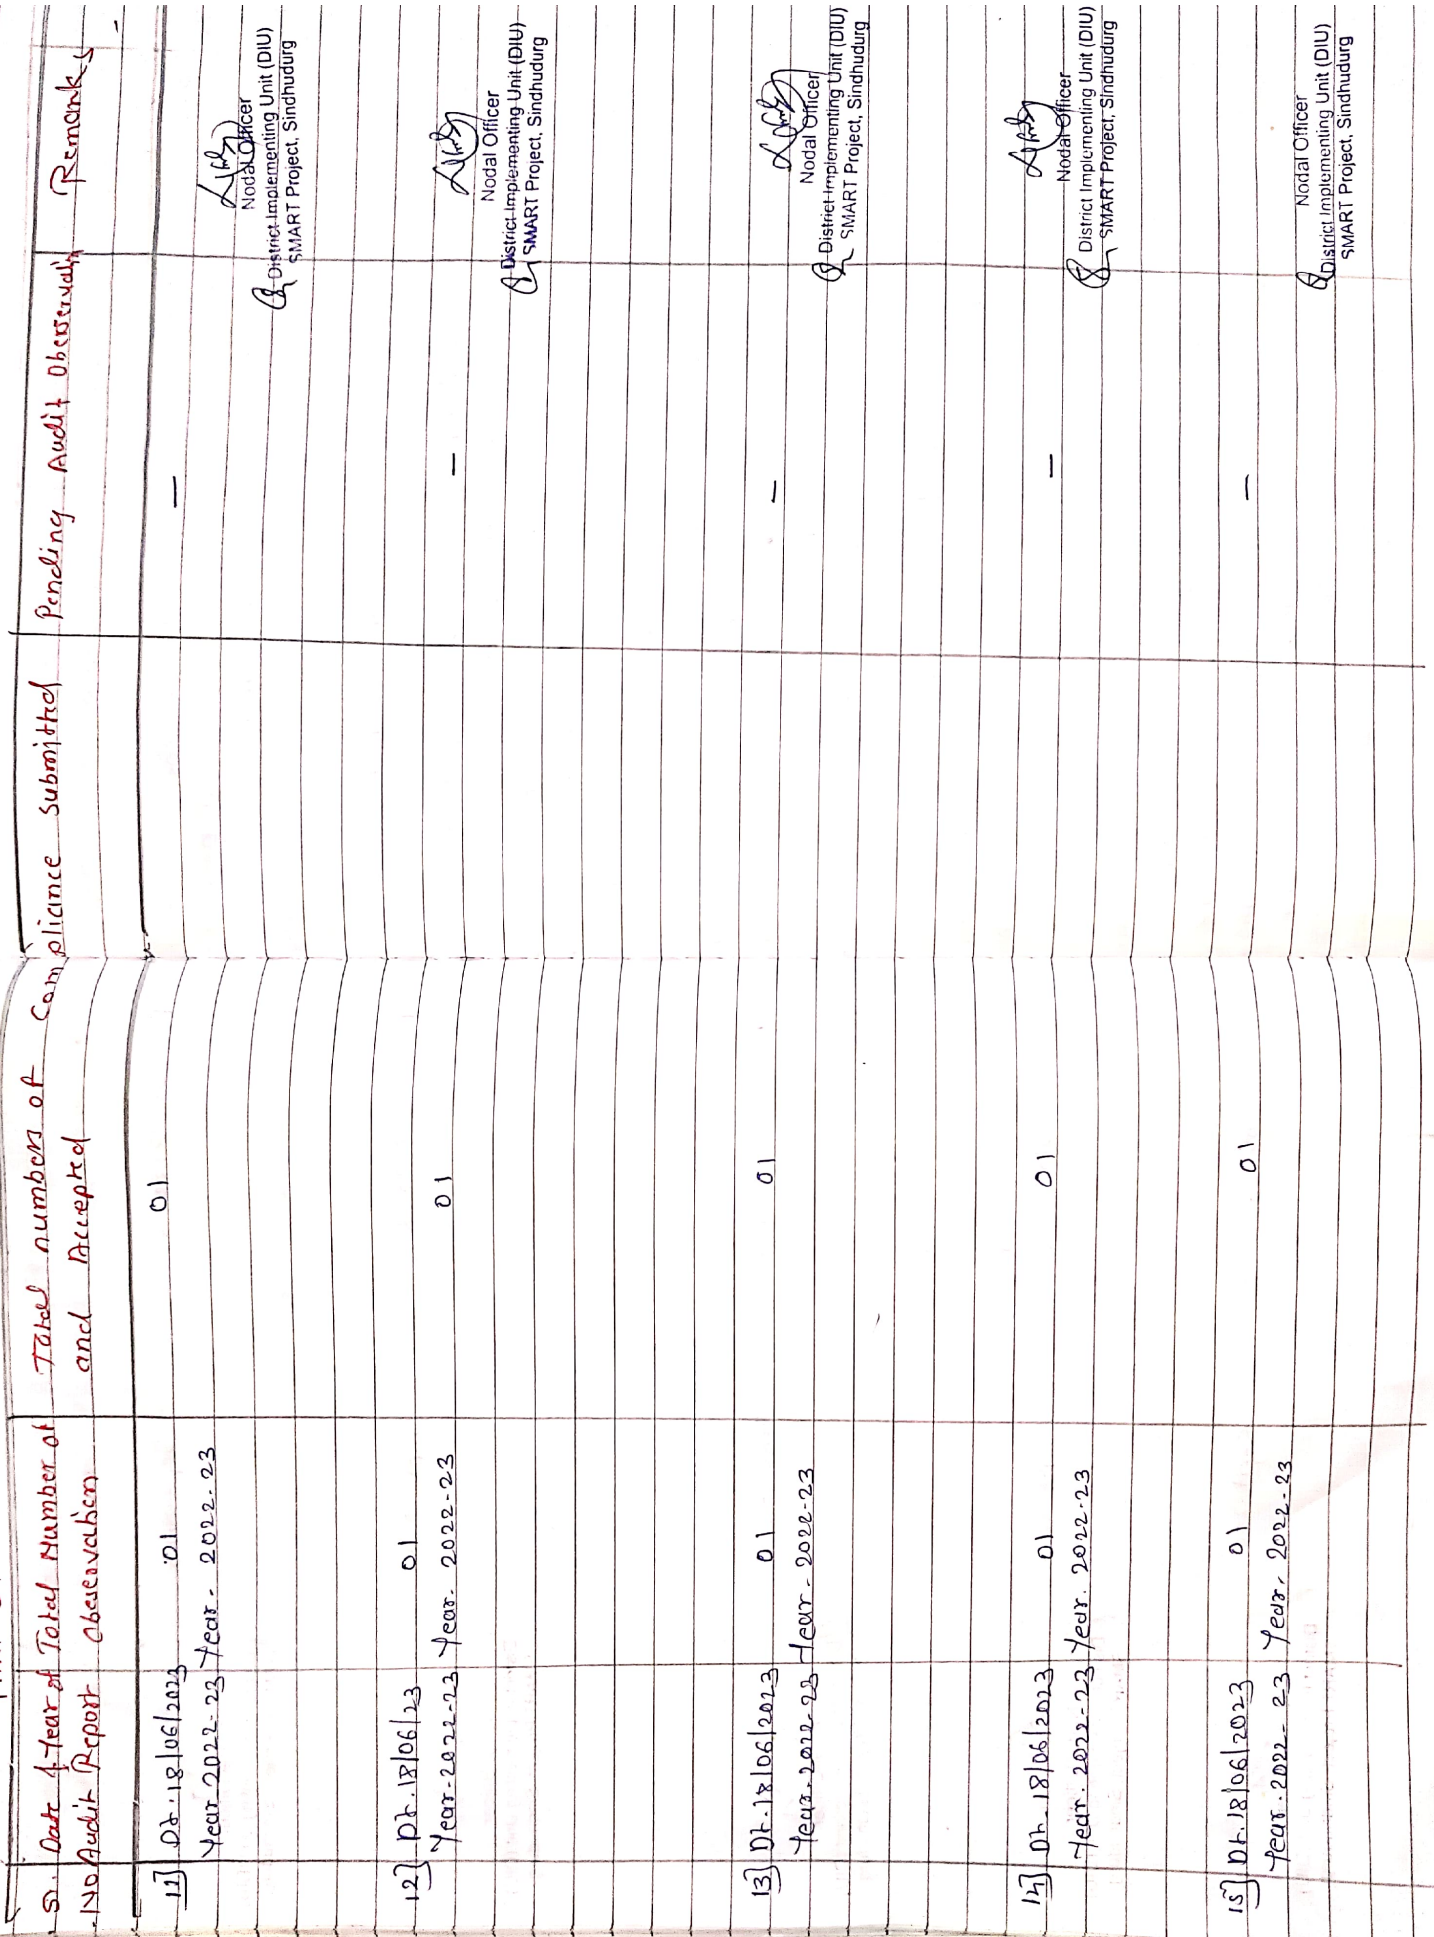 Sr. Date & Year of Total Number of Total numbers of Compliance submitted Pending Audit Obersevatin Remarks
No Audit Report obesevation and Accepted
11] Dt. 18/06/2023 01 01 —
Year 2022-23 Year - 2022-23
Nodal Officer
District Implementing Unit (DIU)
SMART Project, Sindhudurg
12] Dt. 18/06/23 01 01 —
Year-2022-23 Year. 2022-23
Nodal Officer
District Implementing Unit (DIU)
SMART Project, Sindhudurg
13] Dt. 18/06/2023 01 01 —
Year. 2022-23 Year- 2022-23
Nodal Officer
District Implementing Unit (DIU)
SMART Project, Sindhudurg
14] Dt. 18/06/2023 01 01 —
Year. 2022-23 Year. 2022-23
Nodal Officer
District Implementing Unit (DIU)
SMART Project, Sindhudurg
15] Dt. 18/06/2023 01 01 —
Year. 2022-23 Year. 2022-23
Nodal Officer
District Implementing Unit (DIU)
SMART Project, Sindhudurg